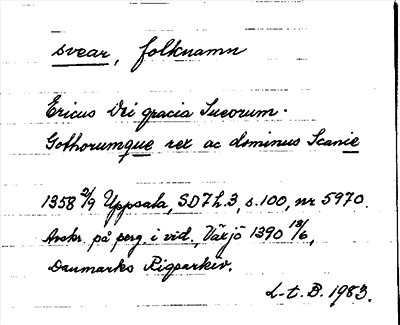 svear, folknamn
Ericus Dei gracia Sueorum
Gothorumque rex ac dominus Scanie
1358 2/9 Uppsala, SD 7 h.3, s.100, nr 5970.
Avskr. på perg. i vid., Växjö 1390 13/6,
Danmarks Rigsarkiv.
L-t. B. 1983.